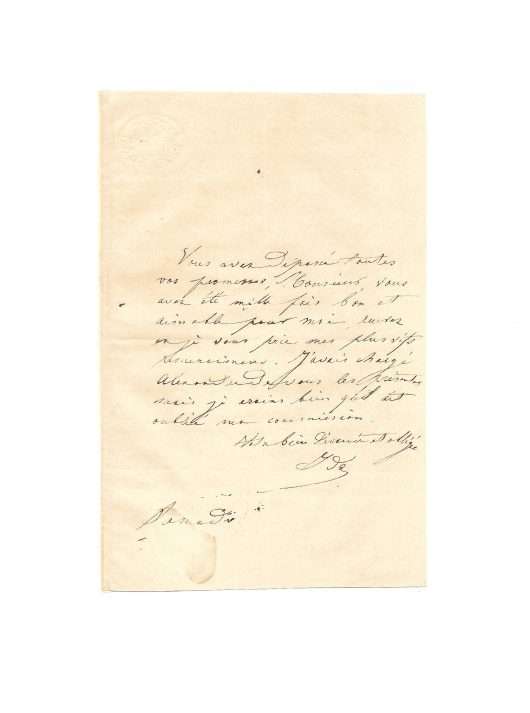 Vous avez Dépassé toutes
vos promesses, Monsieur, vous
avez été mille fois bon et
aimable pour moi, recevez
en je vous prie mes plus vifs
remerciemens. J'avais chargé
Alexandre De vous les présenter
mais je crains bien qu'il ait
oublié ma commission.
Votre bien Dévouée et obligée
Ida
Samedi